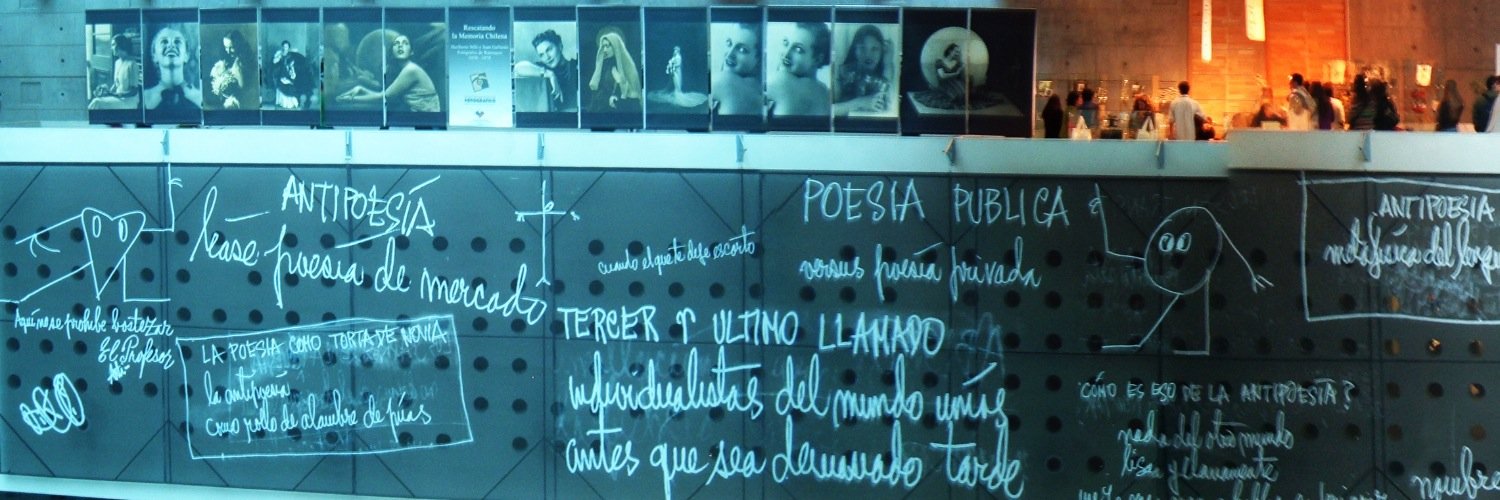 Rescatando
la Memoria Chilena
ANTIPOESÍA
léase poesía de mercado
Aquí no se prohibe bostezar
El Profesor
LA POESIA COMO TORTA DE NOVIA
la antipoesía
como rollo de alambre de púas
cuando el quete defe escorto
POESIA PUBLICA
versus poesía privada
TERCER Y ULTIMO LLAMADO
individualistas del mundo uníos
antes que sea demasiado tarde
ANTIPOESIA
metafísica del
CÓMO ES ESO DE LA ANTIPOESÍA?
nada del otro mundo
lisa y llanamente
nombre